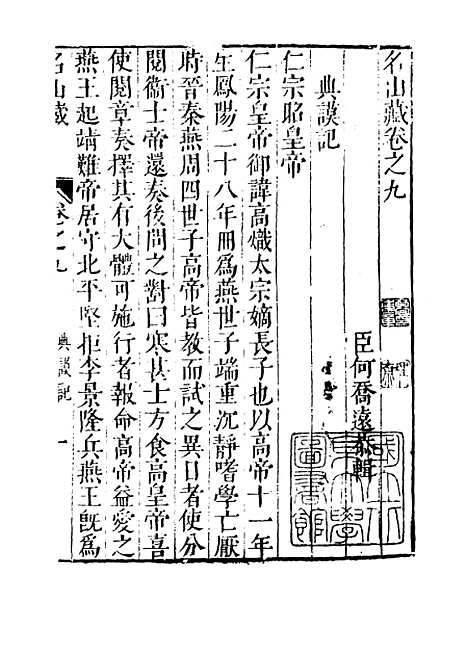 名山藏卷之九
臣何喬遠恭輯
典謨記
仁宗昭皇帝
仁宗皇帝御諱高熾太宗嫡長子也以高帝十一年
生鳳陽二十八年冊爲燕世子端重沉靜嗜學亡厭
時晉秦燕周四世子高帝皆教而試之異日者使分
閱衞士帝還奏後問之對曰寒甚士方食高皇帝喜
使閱章奏擇其有大體可施行者報命高帝益愛之
燕王起靖難帝居守北平堅拒李景隆兵燕王旣爲
名山藏
卷之九
典謨記
一
圖書館